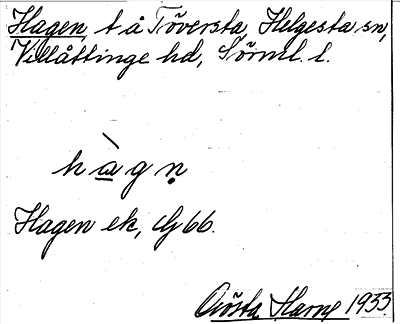 Hagen, t å Töversta, Helgesta sn,
Villåttinge hd, Sörml. l.
hàgn̥
Hagen ek, G 66.
Gösta Harne 1933